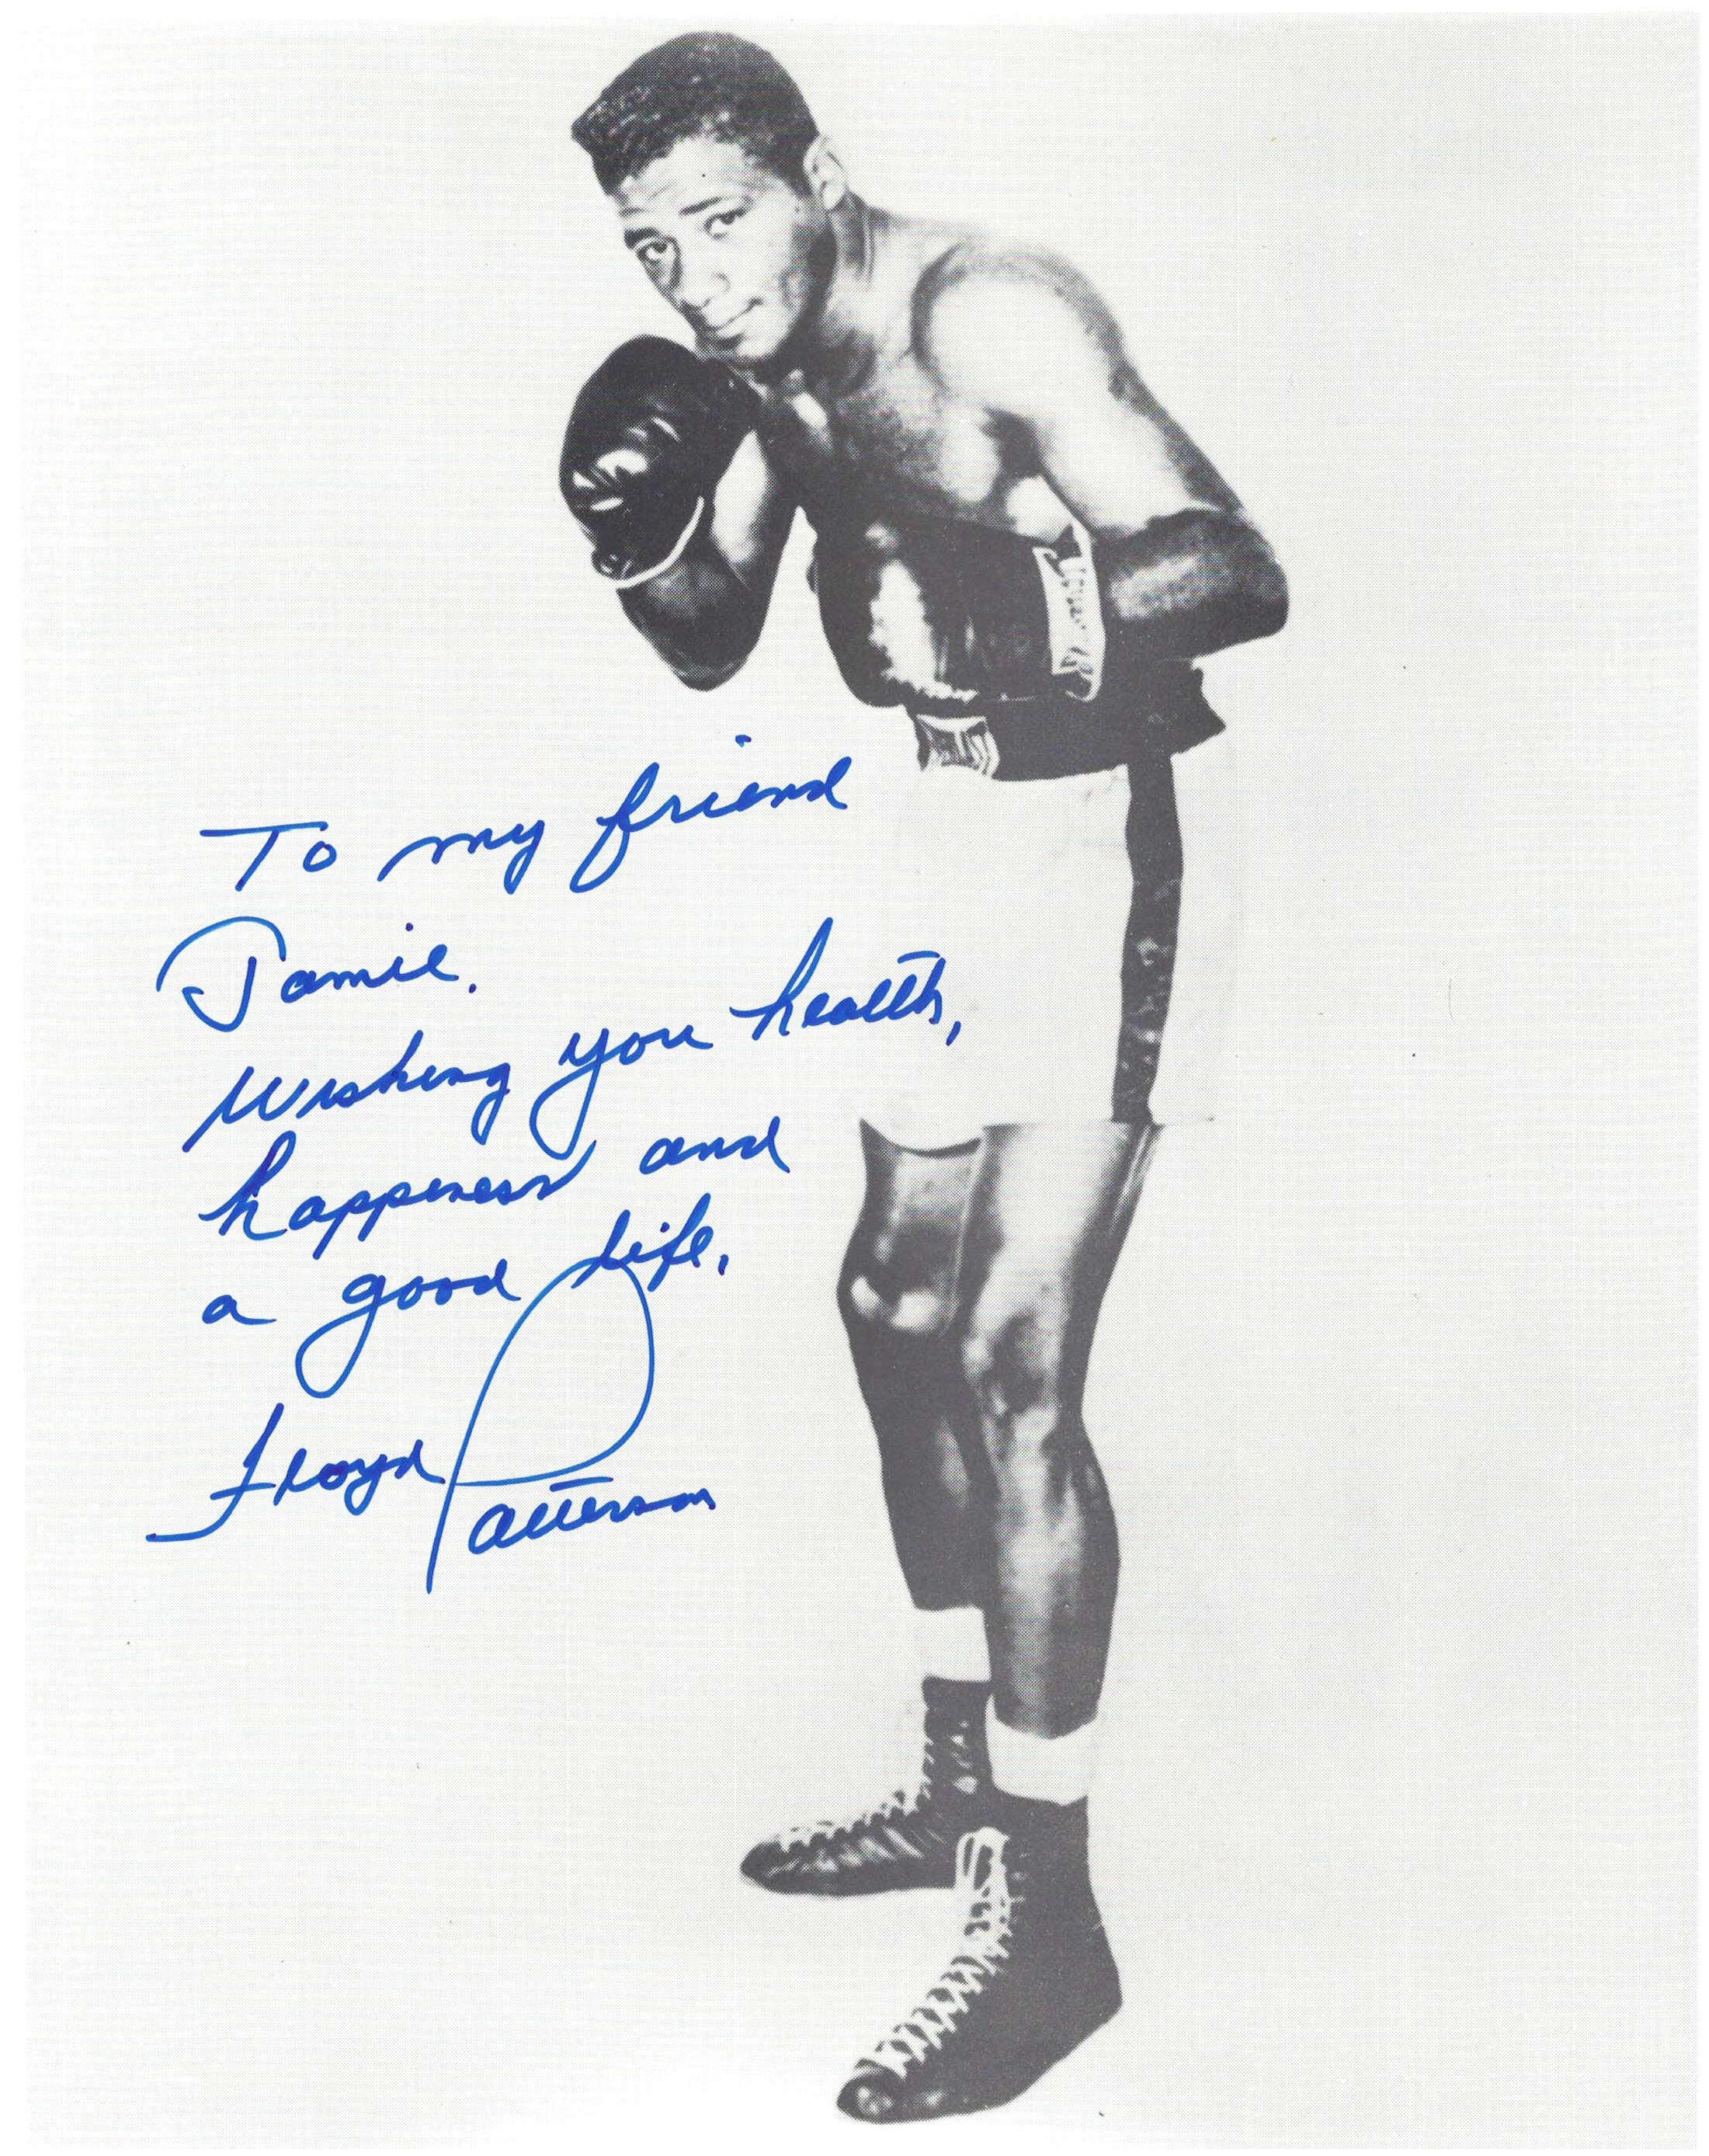 To my friend
Jamie.
Wishing you health,
happiness and
a good life,
Floyd Patterson